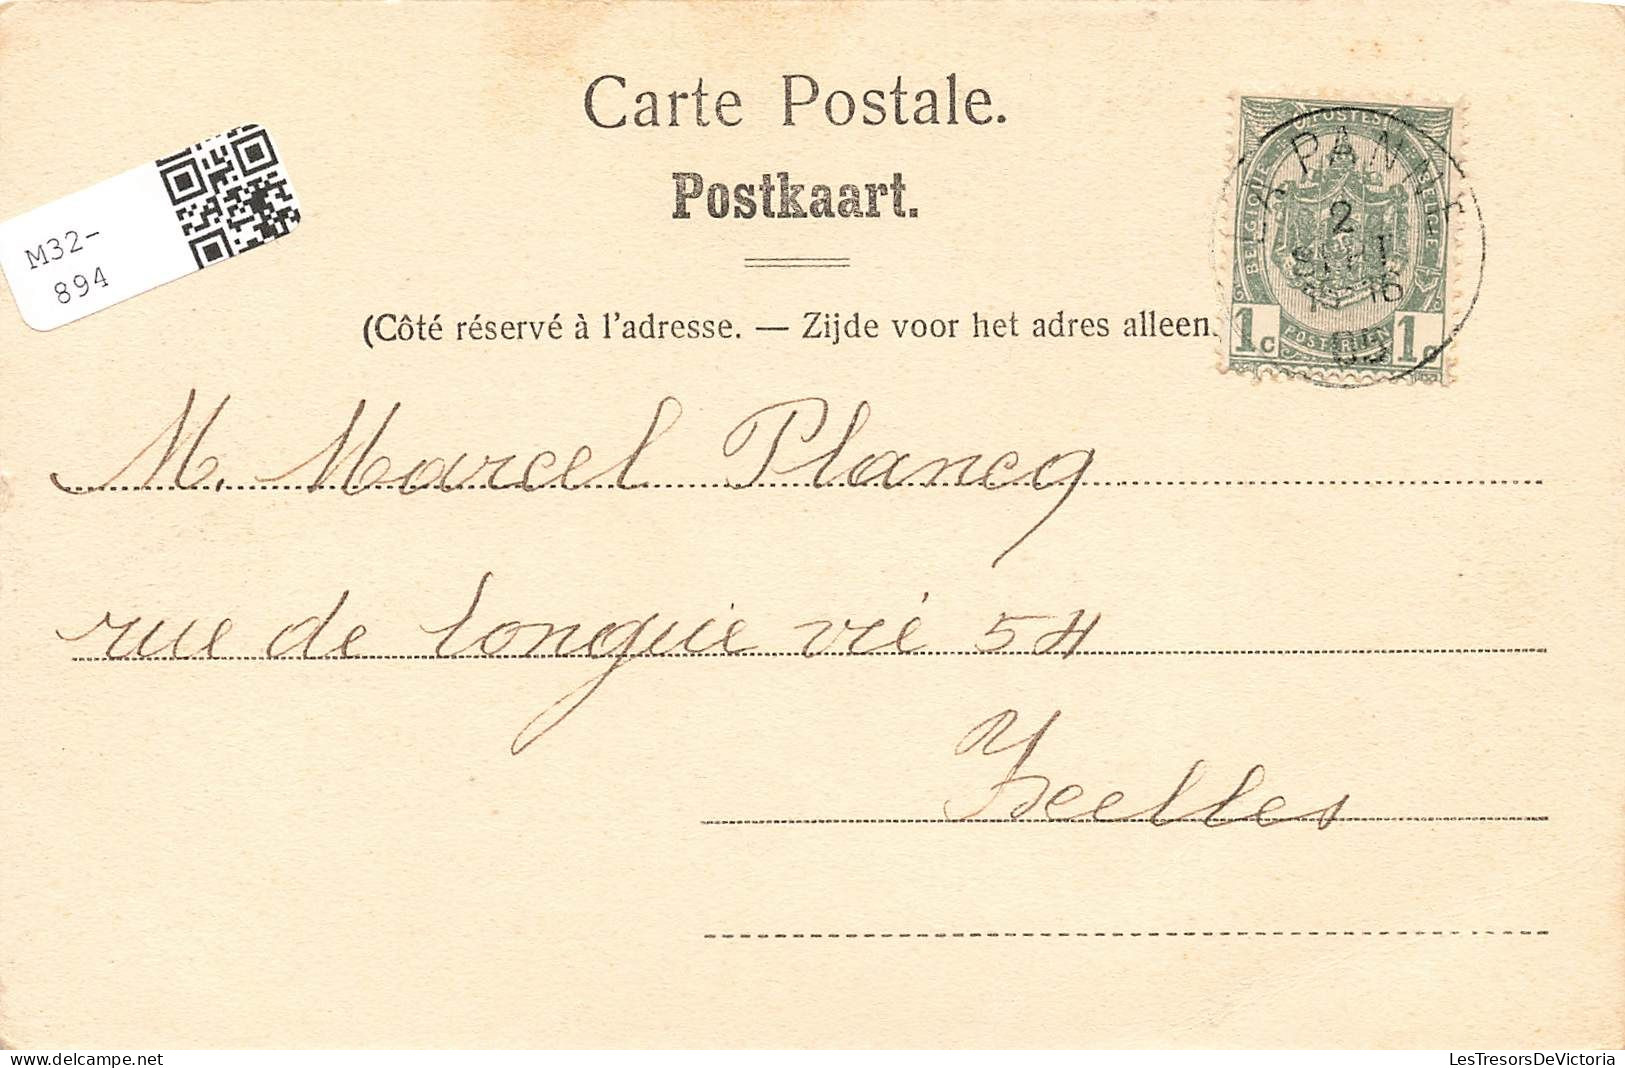 Carte Postale.
Postkaart.
M32-
894
(Côté réservé à l'adresse. — Zijde voor het adres alleen.
POSTES
BELGIQUE
BELGIË
POSTERIJEN
1c 1c
LA PANNE
2
SEPT
16
05
M. Marcel Plancq
rue de longue vie 54
Ixelles
LesTresorsDeVictoria